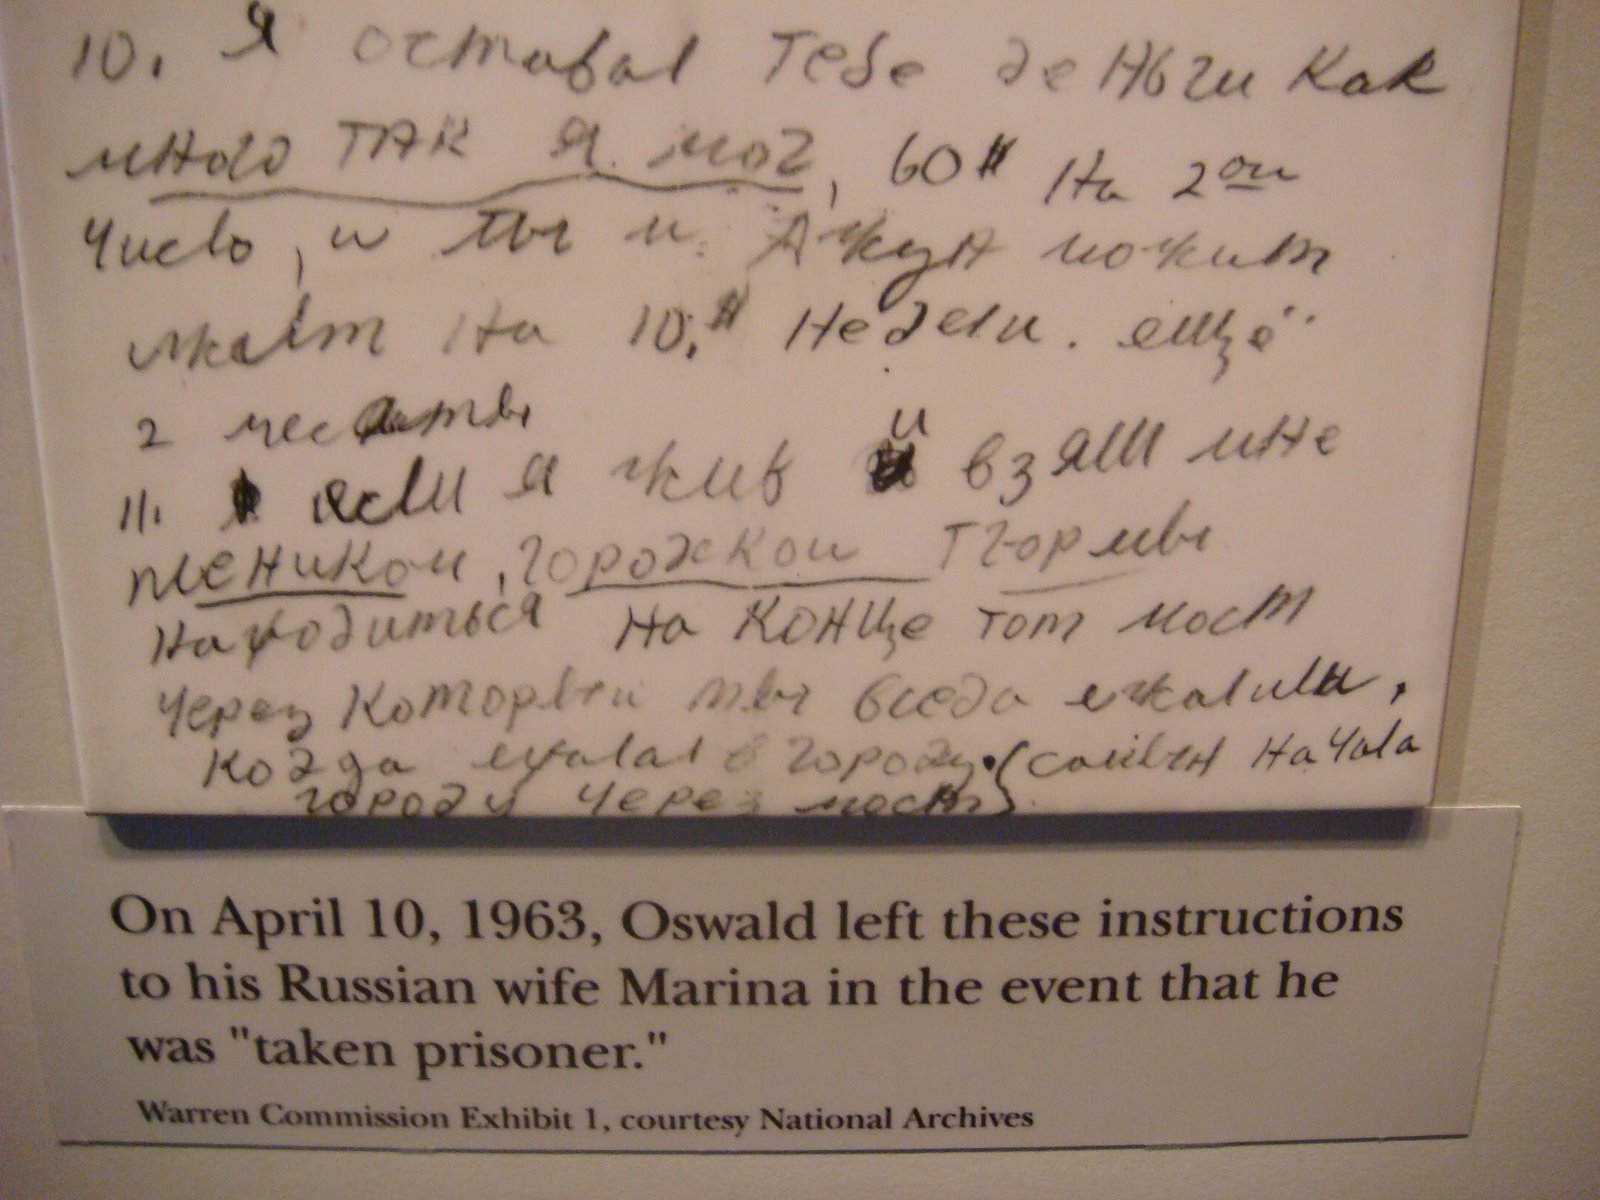 10. Я оставал тебе деньги как
много так я мог, 60# на 2ои
число, и ты и Ажун можит
жавт на 10.# недели. ещё
2
11. если я жив и взяли мне
плеником, городкои тгормы
находиться на конце тот мост
через которыи ты вседа ежалили,
когда ехалал в городу. (самвн начала
городу через мост)
On April 10, 1963, Oswald left these instructions
to his Russian wife Marina in the event that he
was "taken prisoner."
Warren Commission Exhibit 1, courtesy National Archives